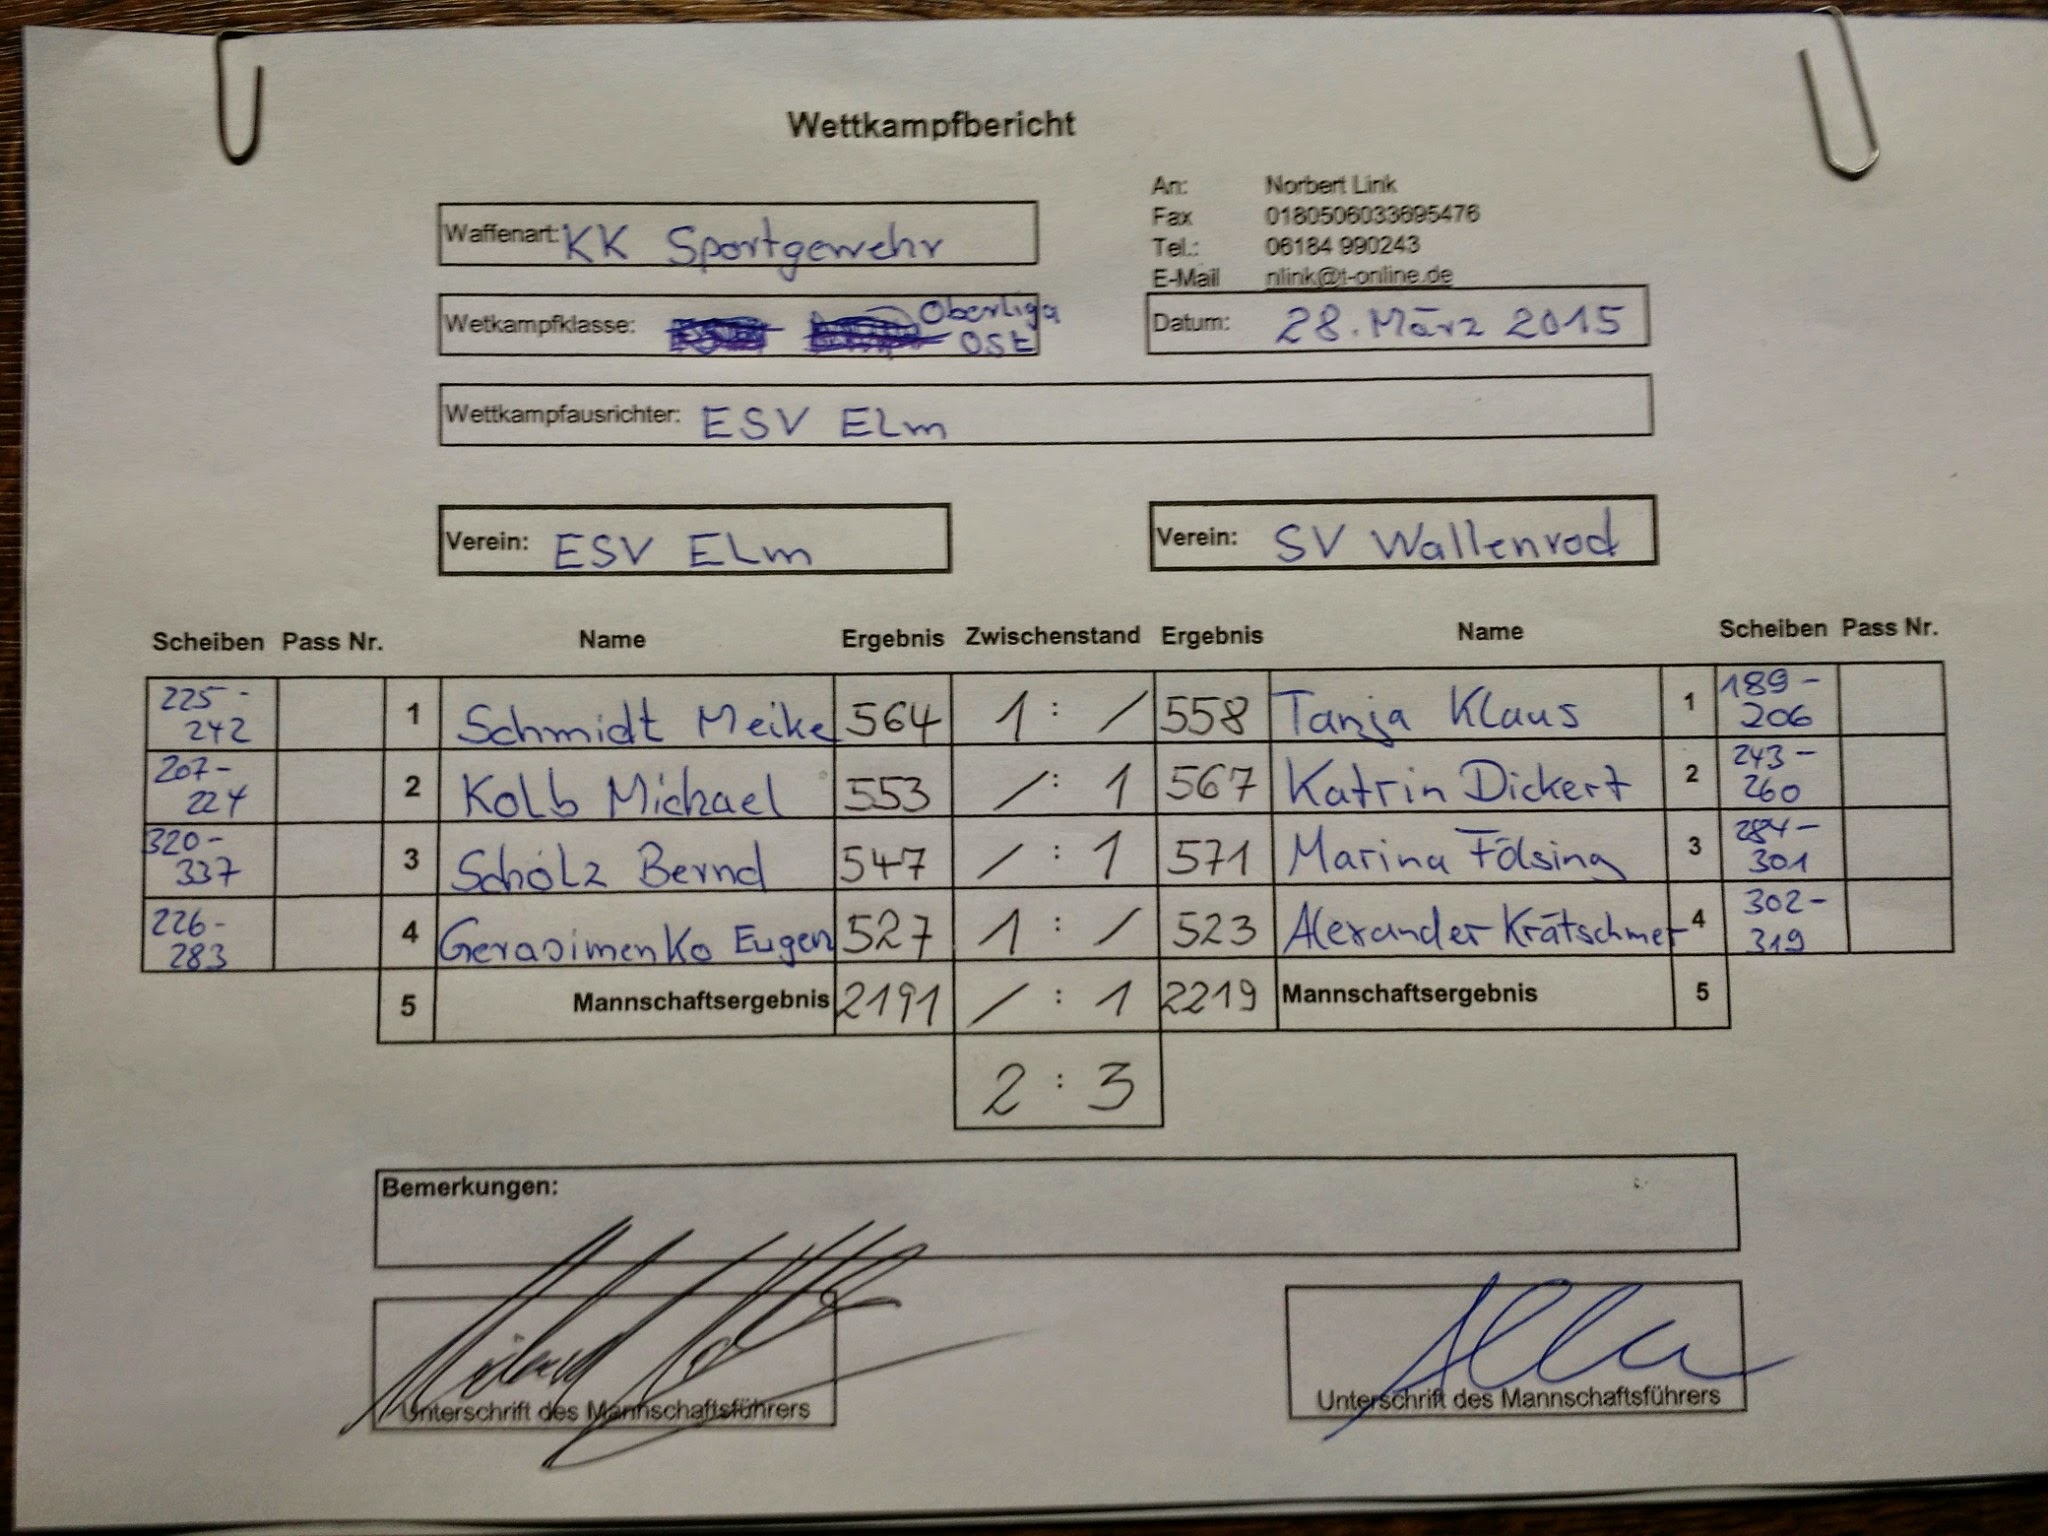 Wettkampfbericht
An: Norbert Link
Fax 0180506033695476
Tel.: 06184 990243
E-Mail nlink@t-online.de
Waffenart: KK Sportgewehr
Wetkampfklasse: Oberliga
Ost
Datum: 28. März 2015
Wettkampfausrichter: ESV ELm
Verein: ESV ELm
Verein: SV Wallenrod
Scheiben Pass Nr. Name Ergebnis Zwischenstand Ergebnis Name Scheiben Pass Nr.
225-242 1 Schmidt Meike 564 1 : / 558 Tanja Klaus 1 189-206
207-224 2 Kolb Michael 553 / : 1 567 Katrin Dickert 2 243-260
320-337 3 Scholz Bernd 547 / : 1 571 Marina Fölsing 3 284-301
226-283 4 Gerasimenko Eugen 527 1 : / 523 Alexander Krätschmer 4 302-319
5 Mannschaftsergebnis 2191 / : 1 2219 Mannschaftsergebnis 5
2 : 3
Bemerkungen:
Unterschrift des Mannschaftsführers
Unterschrift des Mannschaftsführers